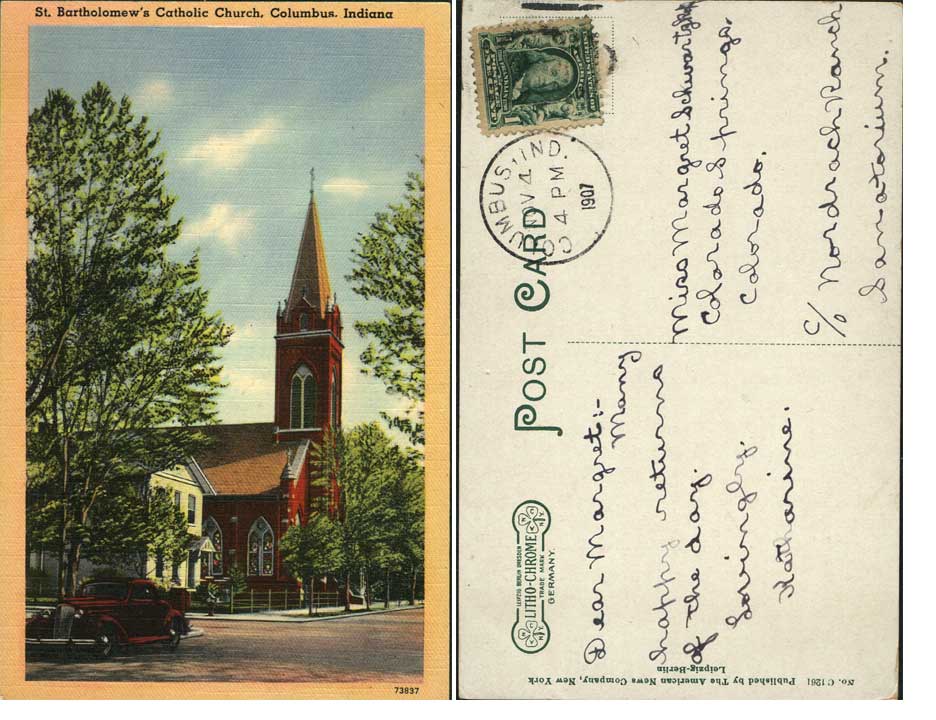 St. Bartholomew's Catholic Church, Columbus, Indiana
73837
UMBUS, IND.
NOV 4
4 PM
1907
POST CARD
LEIPZIG BERLIN DRESDEN
LITHO-CHROME
TRADE MARK
GERMANY.
Miss Margret
Colorado Springs.
Colorado.
c/o Nordrach Ranch
Sanatorium.
Dear Margret:-
Many
happy returns
of the day.
Lovingly,
Katharine.
No. C 1261 Published by The American News Company, New York
Leipzig-Berlin